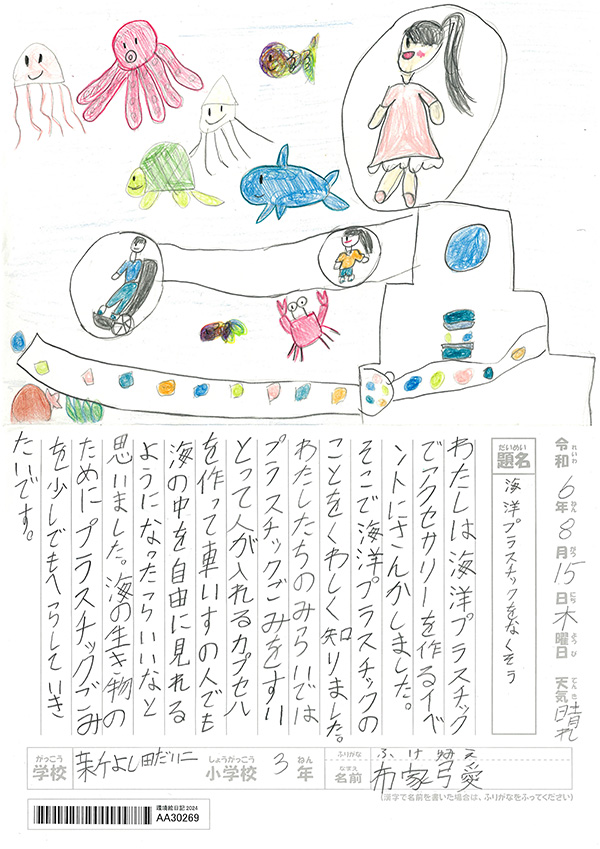 令和6年8月15日木曜日 天気 晴れ
れいわ ねん がつ にち ようび てんき
だいめい
題名 海洋プラスチックをなくそう
わたしは海洋プラスチック
でアクセサリーを作るイベ
ントにさんかしました。
そこで海洋プラスチックの
ことをくわしく知りました。
わたしたちのみらいでは
プラスチックごみをすい
とって人が入れるカプセル
を作って車いすの人でも
海の中を自由に見れる
ようになったらいいなと
思いました。海の生き物の
ためにプラスチックごみ
を少しでもへらしていき
たいです。
がっこう しょうがっこう ねん ふりがな ふけ
学校 新よし田だい二 小学校 3年 なまえ 名前 布家弓愛
(漢字で名前を書いた場合は、ふりがなをふってください)
環境絵日記2024
AA30269